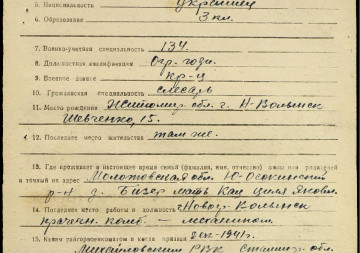 5. Национальность украинец
6. Образование 3 кл.
7. Военно-учетная специальность 134
8. Должностная квалификация огр. годн.
9. Военное звание кр-ц
10. Гражданская специальность слесарь
11. Место рождения Житомир. обл. г. Н-Волынск
Шевченко, 15.
12. Последнее место жительства там же.
13. Где проживает в настоящее время семья (фамилия, имя, отчество) жены или родителей
и точный их адрес Молотовская обл. Ю-Осокинский
р-н д. Бизер мать Кац Циля Яковл.
14. Последнее место работы и должность г. Новог. Волынск
прачечн. комб. — механиком.
15. Каким райгорвоенкоматом и когда призван 8 окт. 1941 г.
Михайловским РВК Сталинг. обл.